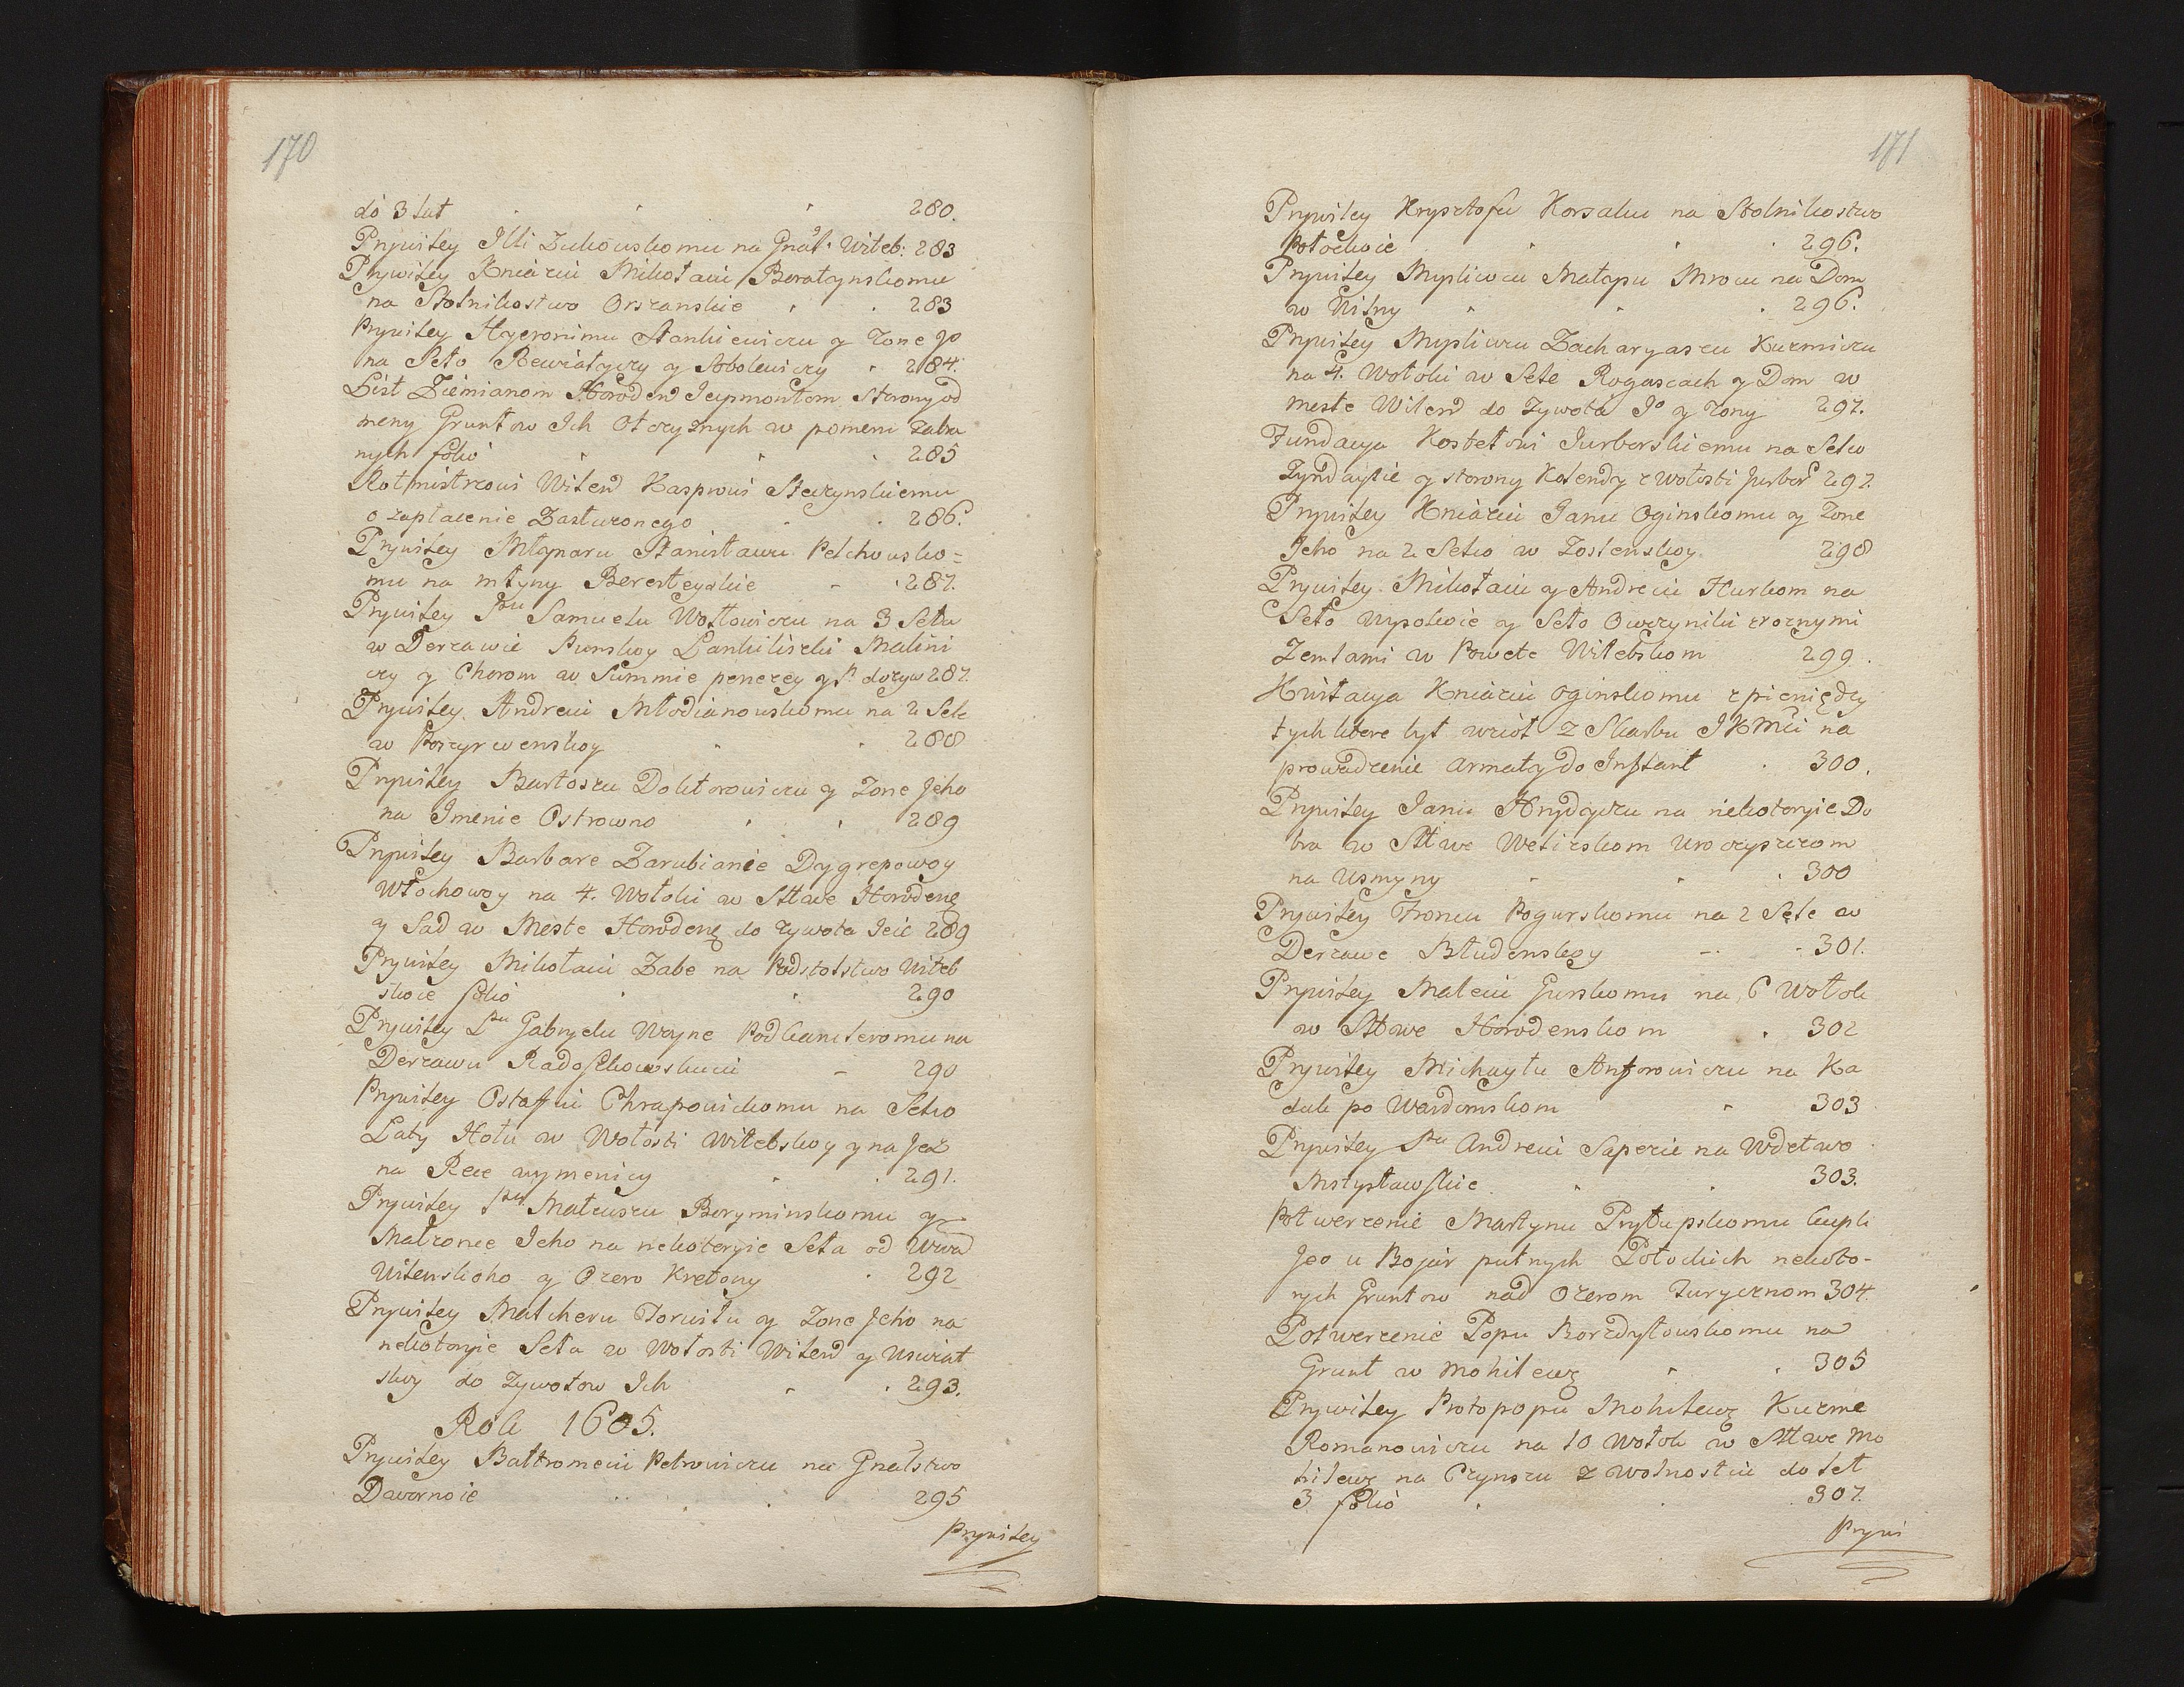 170
do 3 lat 280.
Prywiley Illi Zukowskomu na Gnał: Witeb: 283
Prywiley Kniaziu Mikołaiu Boratynskomu
na Stolnikostwo Orszanskie 283
Prywiley Hgeronimu Stankiewiczu y Zone Jo
na Seło Rewiatyczy y Sobolewiczy 284.
List Ziemianom Horoden Jeymontom Strony od
meny Gruntow Ich Otczyznych w pomeru zabra
nych folio 285
Rotmistrzowi Wilen Kasprowi Steczynskiemu
o zapłacenie Zasłuzonego 286.
Prywiley Młynaru Stanisławu Pelchowsko=
mu na młyny Beresteyskie 287.
Prywiley Pnu Samuelu Wołłowiczu na 3 Seła
w Derzawie Punskoy Lankiliszki Malini
czy y Chorom w Summie penezey y P. dozyw 287.
Prywiley Andreiu Młodianowskomu na 2 Sele
w Poszyrwenskoy 288
Prywiley Bartoszu Doktorowiczu y Zone Jeho
na Imenie Ostrowno 289
Prywiley Barbare Zarubianie Dygrepowoy
Włochowoy na 4. Wołoki w Sttwe Horoden
y Sad w Meste Horoden do zywota Jeie 289
Prywiley Mikołaiu Zabe na Podstolstwo Witeb
skoie folio 290
Prywiley Pnu Gabryelu Woyne Podkancleromu na
Derzawu Radoszkowskuiu 290
Prywiley Ostafiu Chrapowickomu na Selco
Laty Hołu w Wołosti Witebskoy y na Jez
na Rece wymenicy 291.
Prywiley Pnu Mateuszu Boryminskomu y
Małzonce Jeho na nekotoryie Seła od Wwa
Wilenskoho y Ozero Kretony 292
Prywiley Malcheru Torwiłu y Zone Jeho na
nekotoryie Seła w Wołosti Wilen y Uswiat
skoy do Zywotow Ich 293.
Rok 1605.
Prywiley Bałtromeiu Petrowiczu na Gnalstwo
Dwornoie 295
Prywiley
171
Prywiley Krysztofu Korsaku na Stolnikostwo
Połockoie 296.
Prywiley Mysliwcu Matysu Mrocu na Dom
w Wilny 296.
Prywiley Mysliwcu Zacharyaszu Kuzmiczu
na 4. Wołoki w Sele Rogaszach y Dom w
meste Wilen do Zywota Jo y zony 297.
Fundacya Kostełowi Jurborskiemu na Selco
Zyndaysie y storony Kolendy z Wołosti Jurbor 297.
Prywiley Kniaziu Janu Oginskomu y Zone
Jeho na 2 Selco w Zoslenskoy 298
Prywiley Mikołaiu y Andreiu Hurkom na
Seło Wysokoie y Seło Owczyniki z roznymi
Zemlami w Powete Witebskom 299.
Kwitacya Kniaziu Oginskomu z pieniędzy
tych ktore był wziół z Skarbu JKMci na
prowadzenie Armaty do Inflant 300.
Prywiley Janu Hrydyczu na niekotoryie Do
bra w Sttwe Weliskom Uroczyszczom
na Usmyny 300
Prywiley Froncu Pogurskomu na 2 Sele w
Derzawe Błudenskoy 301.
Prywiley Mateiu Gurskomu na 6 Wołok
w Sttwe Horodenskom 302
Prywiley Michayłu Anforowiczu na Ka
duk po Wardomskom 303
Prywiley Pnu Andreiu Sapezie na Wdctwo
Mstysławskie 303.
Potwerzenie Martynu Prytupskomu Kupli
Jeo u Bojar putnych Połockich nekoto-
rych Gruntow nad Ozerom Turycznom 304.
Potwerzenie Popu Borzdyłowskomu na
Grunt w Mohilew 305
Prywiley Protopopu Mohilew Kuzme
Romanowiczu na 10 Wołok w Sttwe Mo
hilew na Czynszu z Wolnostiu do let
3 folio 307.
Prywi